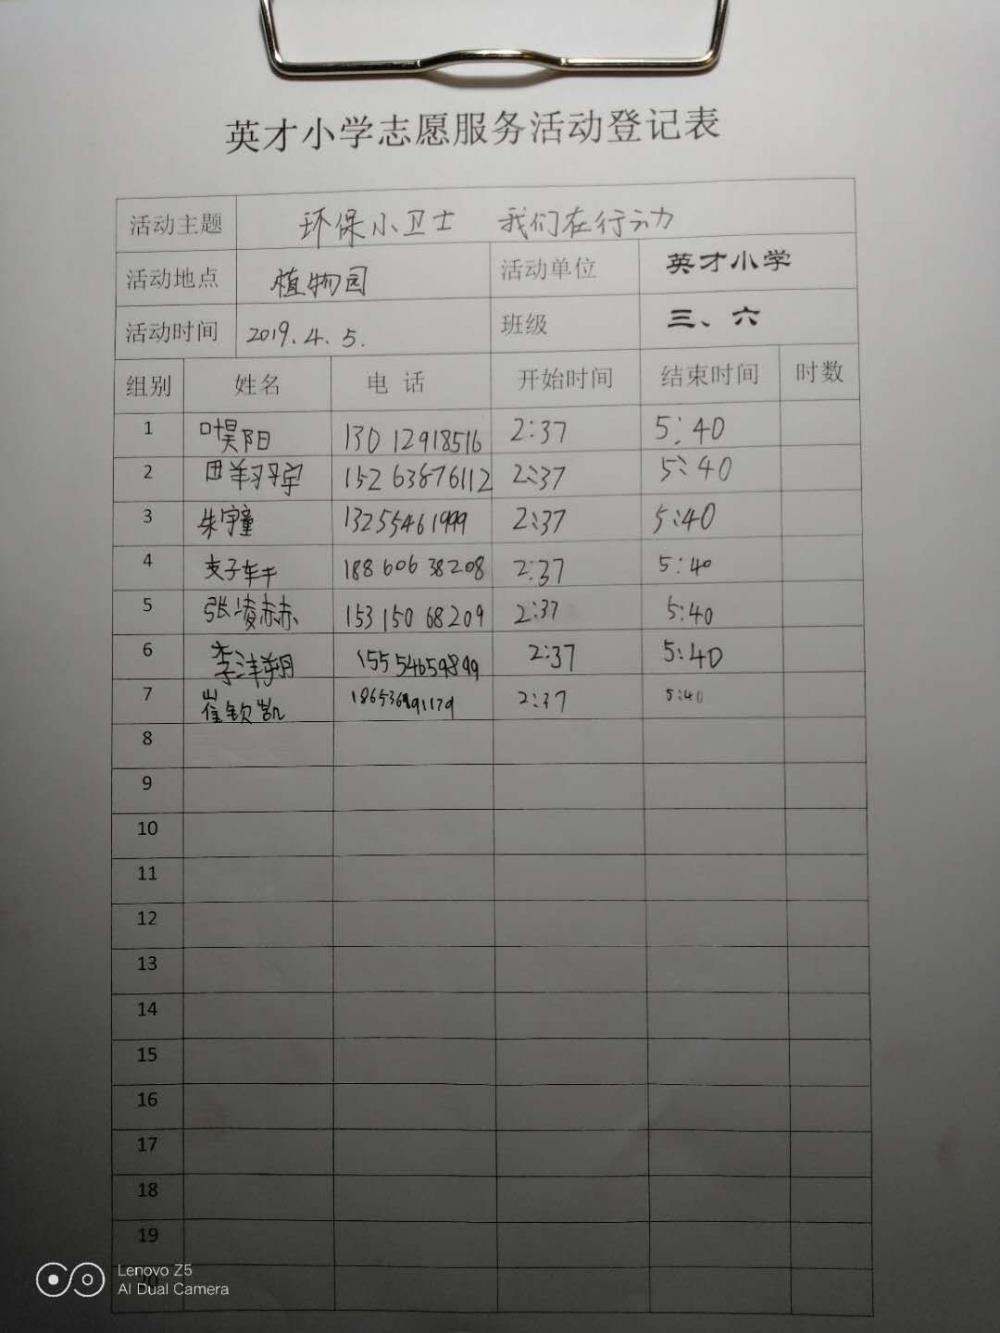 英才小学志愿服务活动登记表
活动主题 环保小卫士 我们在行动
活动地点 植物园 活动单位 英才小学
活动时间 2019.4.5. 班级 三、六
组别 姓名 电 话 开始时间 结束时间 时数
1 叶昊阳 13012918516 2:37 5:40
2 田翔宇 15263876112 2:37 5:40
3 朱宇童 13255461999 2:37 5:40
4 支子轩 18860638208 2:37 5:40
5 张凌赫 15315068209 2:37 5:40
6 李沣朔 15554659899 2:37 5:40
7 崔钦凯 2:37 5:40
8
9
10
11
12
13
14
15
16
17
18
19
20
Lenovo Z5
AI Dual Camera